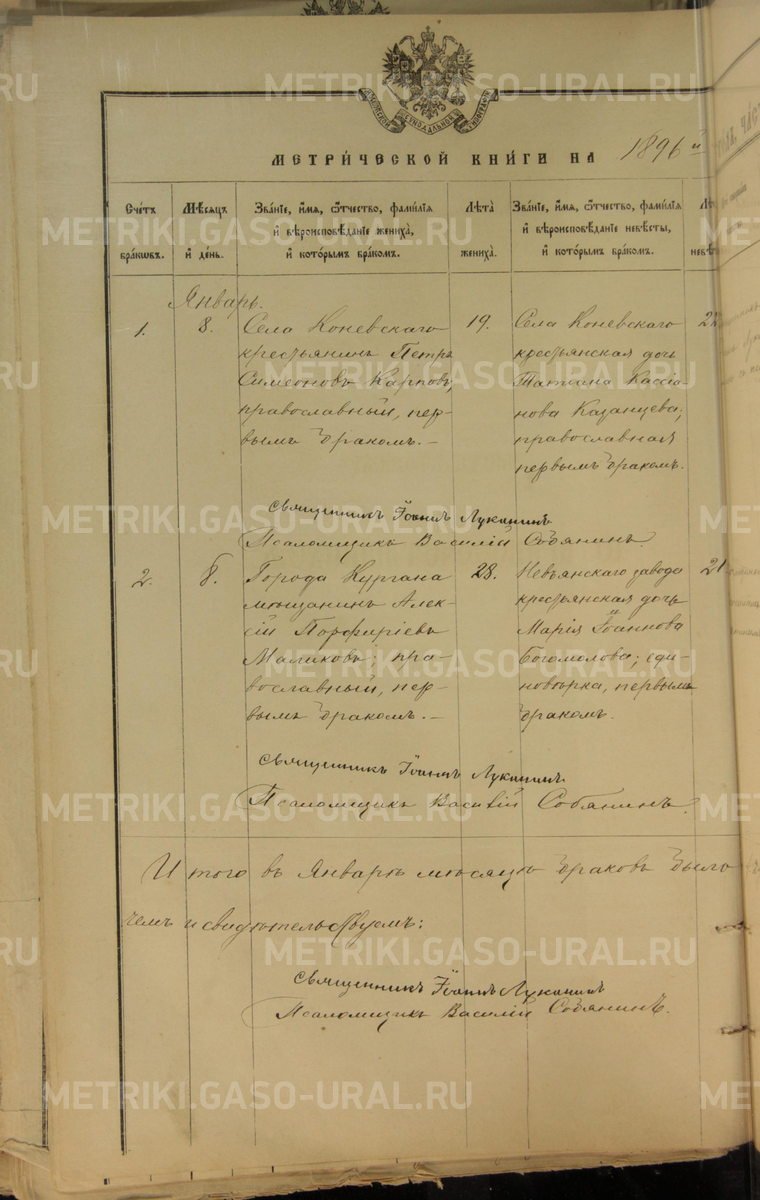 МЕТРИ́ЧЕСКОЙ КНИ́ГИ НА 1896й
Счётъ бра́кѡвъ.
Мѣсяцъ и де́нь.
Зва́нїе, и́мя, ѻ́тчество, фами́лїя и вѣроисповѣ́данїе жениха̀, и кото́рымъ бра́комъ.
Лѣта̀ жениха̀.
Зва́нїе, и́мя, ѻ́тчество, фами́лїя и вѣроисповѣ́данїе невѣ́сты, и кото́рымъ бра́комъ.
Январь.
1.
8.
Села Коневскаго
крестьянинъ Петръ
Симеоновъ Карповъ,
православный, пер-
вымъ бракомъ.-
19.
Села Коневскаго
крестьянская дочь
Татiана Кассiа-
нова Казанцева;
православная
первымъ бракомъ.
22
Священникъ Iоаннъ Луканинъ
Псаломщикъ Василiй Собянинъ.
2.
8.
Города Кургана
мѣщанинъ Алек-
сiй Порфирiевъ
Маликовъ; пра-
вославный, пер-
вымъ бракомъ.-
28.
Невьянскаго завода
крестьянская дочь
Марiя Iоаннова
Богомолова; еди-
новѣрка, первымъ
бракомъ.
21
Священникъ Iоаннъ Луканинъ
Псаломщикъ Василiй Собянинъ.
Итого въ Январѣ мѣсяцѣ браковъ было
чемъ и свидѣтельствуемъ:
Священникъ Iоаннъ Луканинъ
Псаломщикъ Василiй Собянинъ.
METRIKI.GASO-URAL.RU